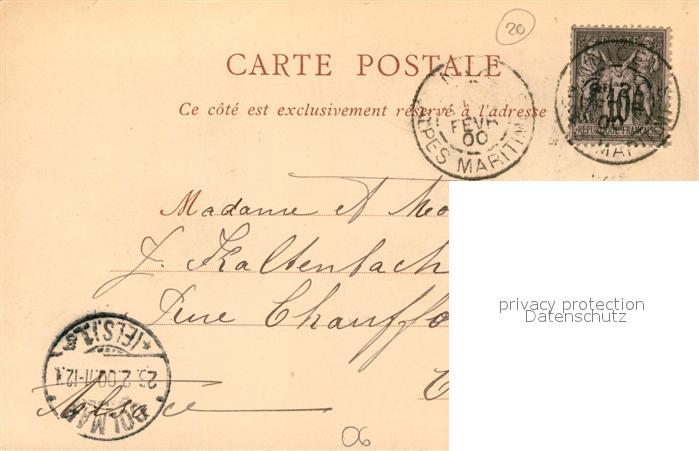 20
CARTE POSTALE
Ce côté est exclusivement réservé à l'adresse
FEVR
00
ALPES MARITIM
POSTE
10
REPUBLIQUE FRANCAISE
Madame et
J. Kaltenbach
Rue Chauffo
Alsace
COLMAR
23.2.00.11-12
(ELS.)
06
privacy protection
Datenschutz